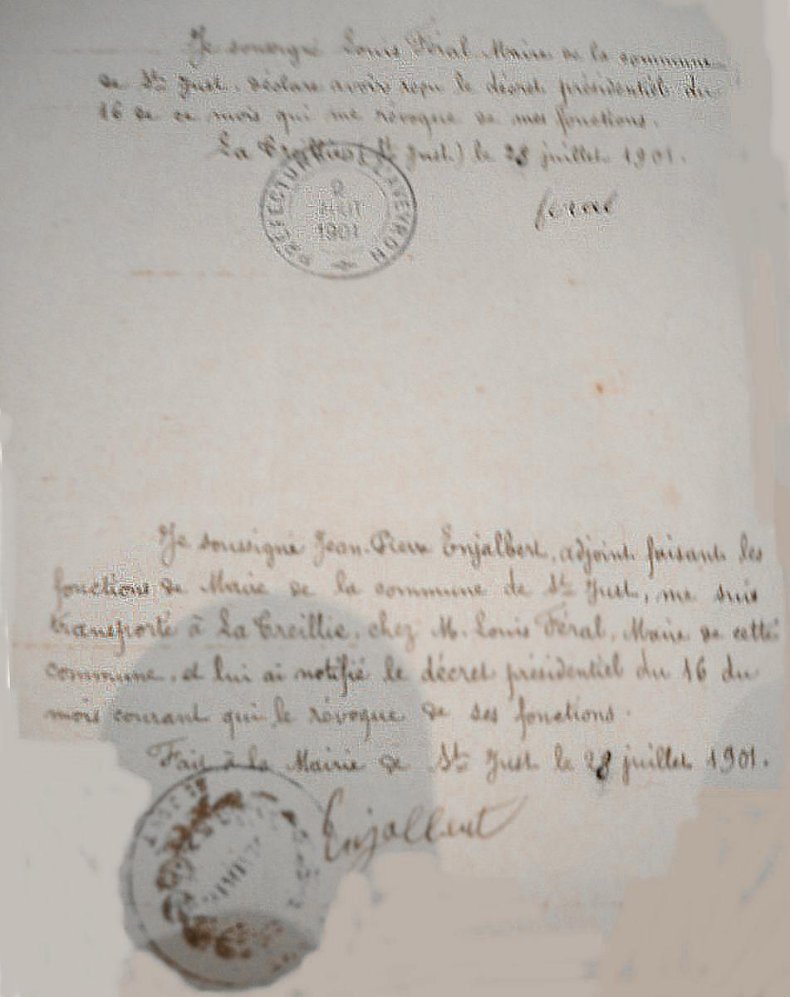 Je soussigné Louis Féral Maire de la commune
de St Just, déclare avoir reçu le décret présidentiel du
16 de ce mois qui me révoque de mes fonctions.
La Treillie (St Just) le 28 juillet 1901.
feral
PREFECTURE L'AVEYRON
2
AOUT
1901
Je soussigné Jean-Pierre Enjalbert, adjoint faisant les
fonctions de Maire de la commune de St Just, me suis
transporté à La Treillie, chez M. Louis Féral, Maire de cette
commune, et lui ai notifié le décret présidentiel du 16 du
mois courant qui le révoque de ses fonctions.
Fait à la Mairie de St Just le 28 juillet 1901.
Enjalbert